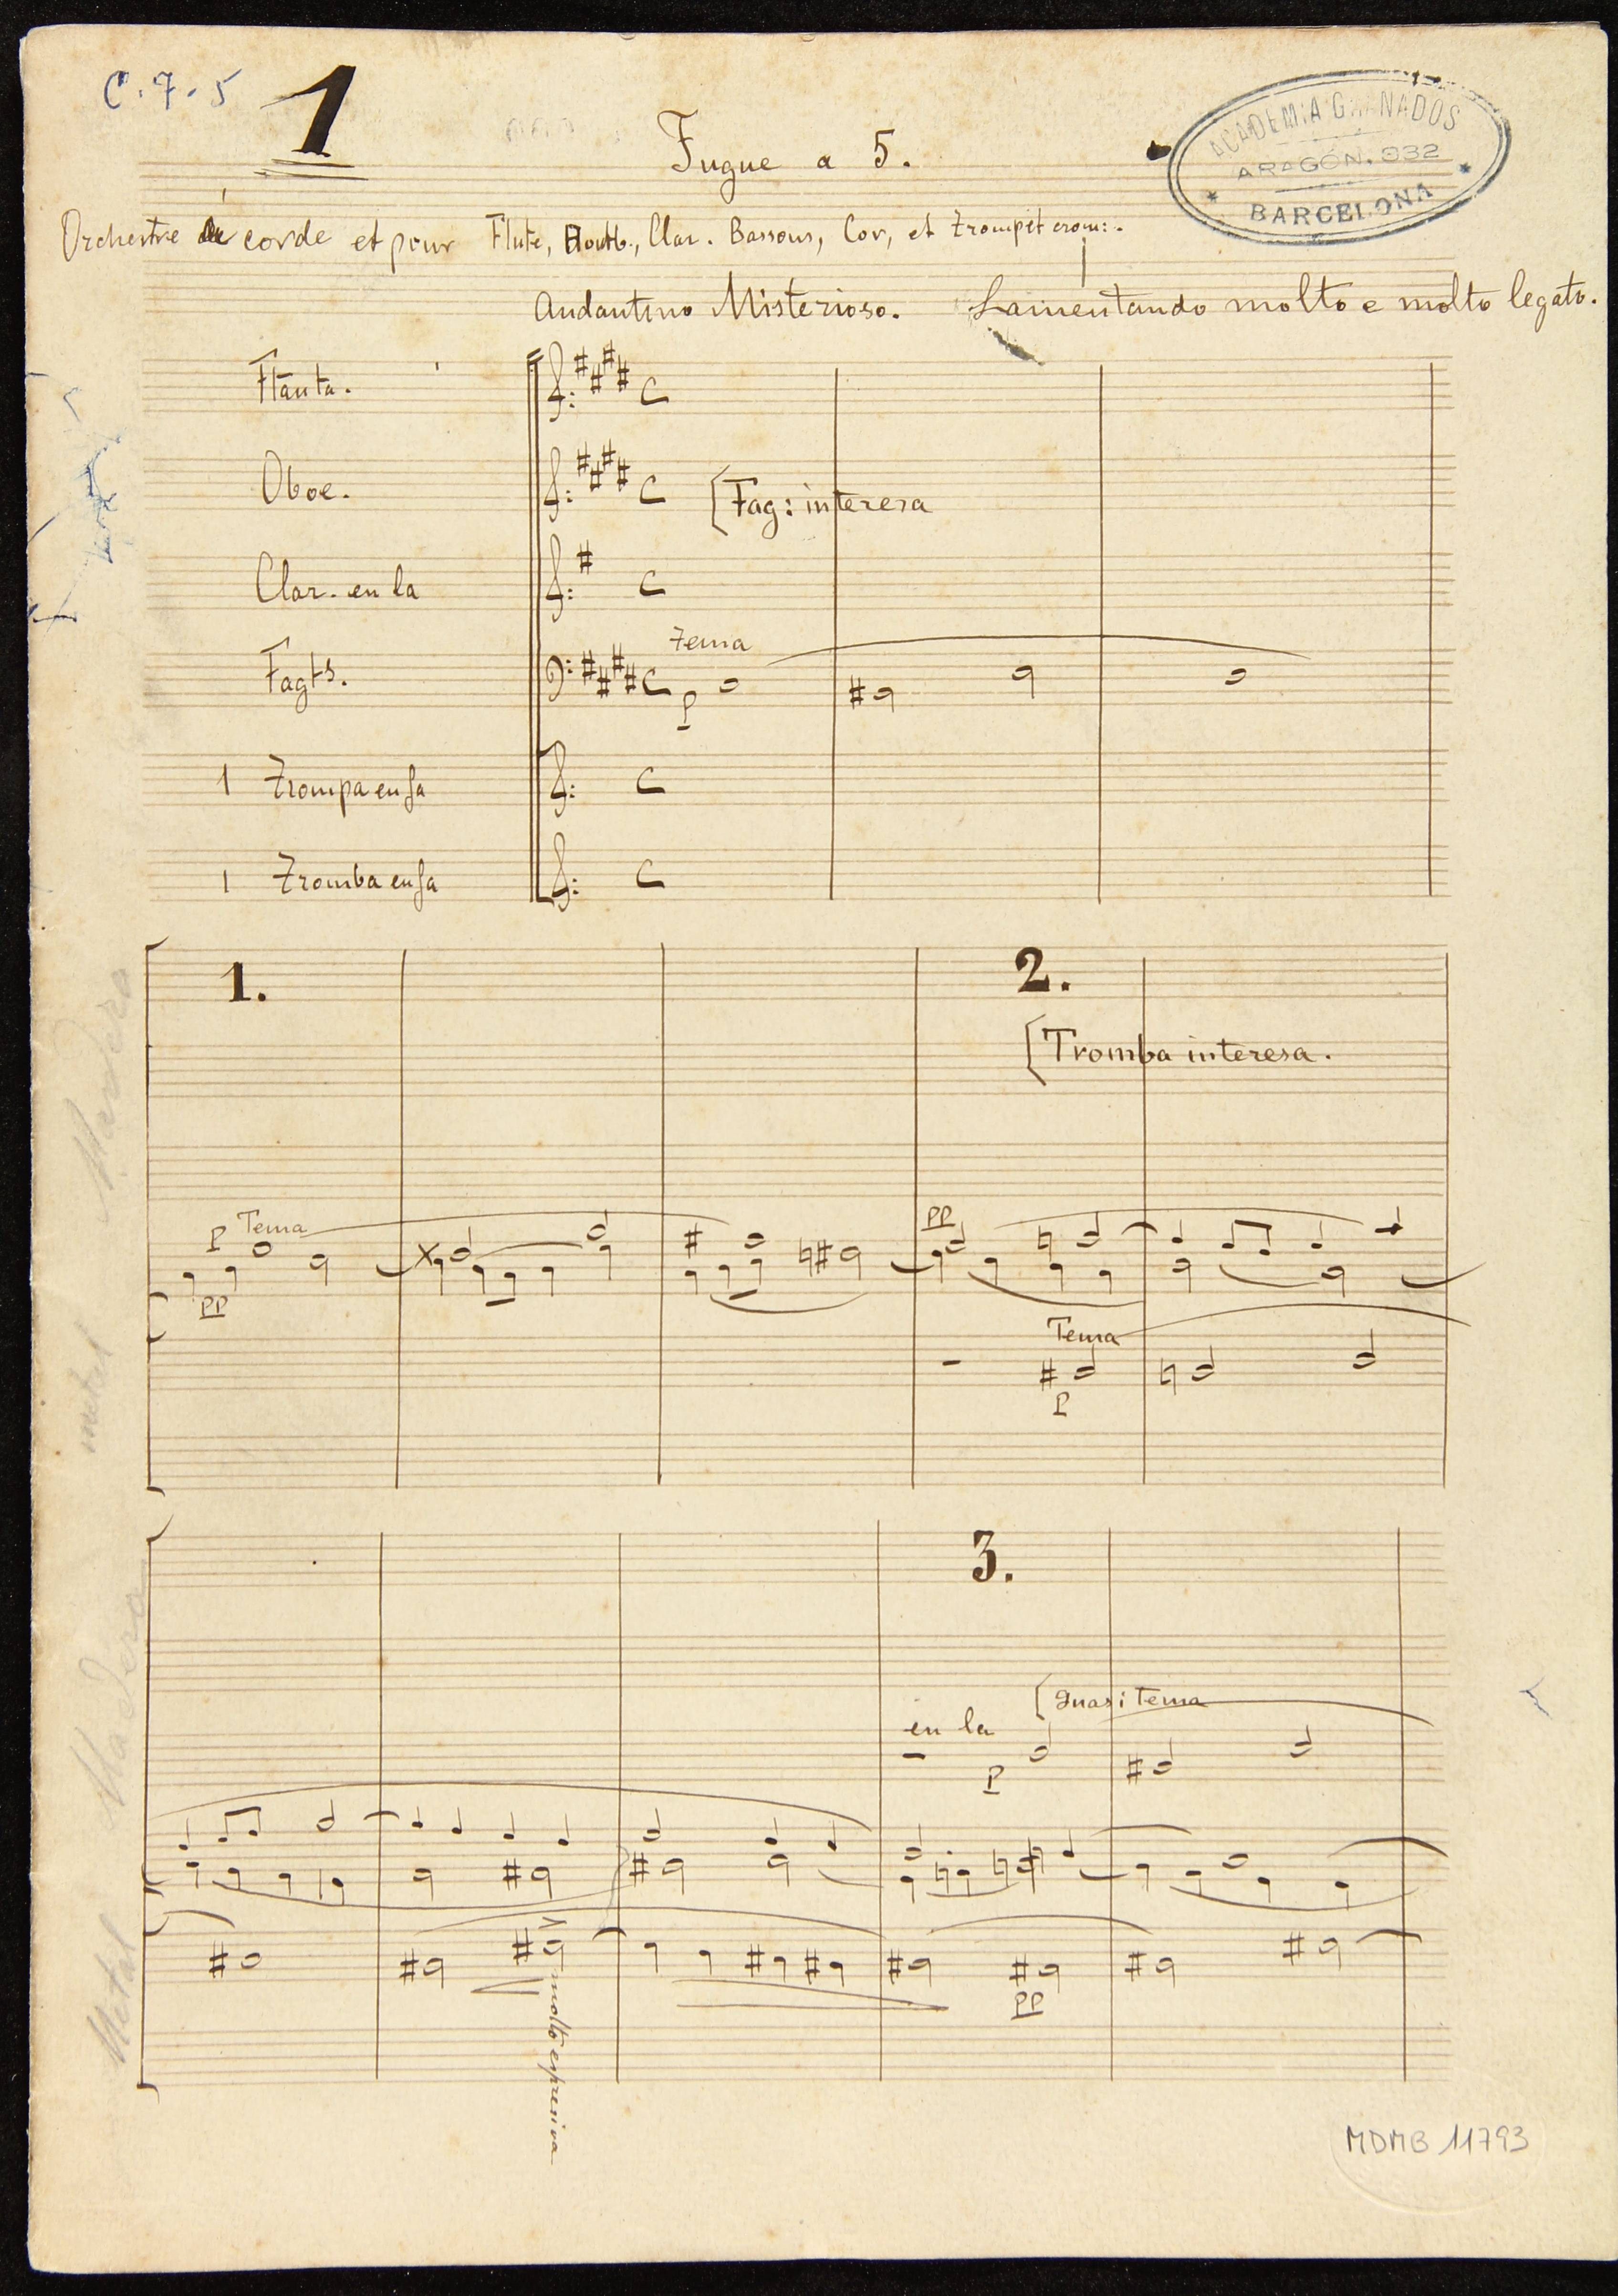 C. 7. 5
1
Fugue a 5.
ACADEMIA GRANADOS
ARAGÓN. 332
BARCELONA
Orchestre de corde et pour Flute, Hautb., Clar. Bassons, Cor, et Trompèt crom:.
Andantino Misterioso. Lamentando molto e molto legato.
Flauta.
Oboe.
[Fag: interesa
Clar. en la
Tema
Fagts.
P
1 Trompa en fa
1 Tromba en fa
1.
2.
[Tromba interesa.
Madera
P Tema
PP
PP
Tema
P
metal
3.
[quasi Tema
en la
P
Madera
PP
molto espresiva
Metal
MDMB 11793